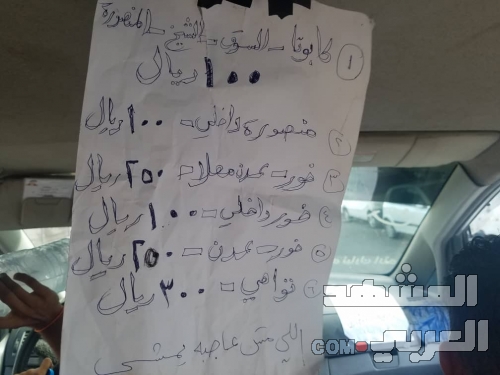 ① كابوتا - السوق - الشيخ - المنصورة
١٠٠ ريال
٢ منصورة داخلي - ١٠٠ ريال
٣ خور - عدن معلا - ٢٥٠ ريال
٤ خور داخلي - ١٠٠ ريال
٥ خور - عدن - ٢٥٠ ريال
تواهي - ٣٠٠ ريال
اللي مش عاجبه يمشي
المشهد
العربي
.COM